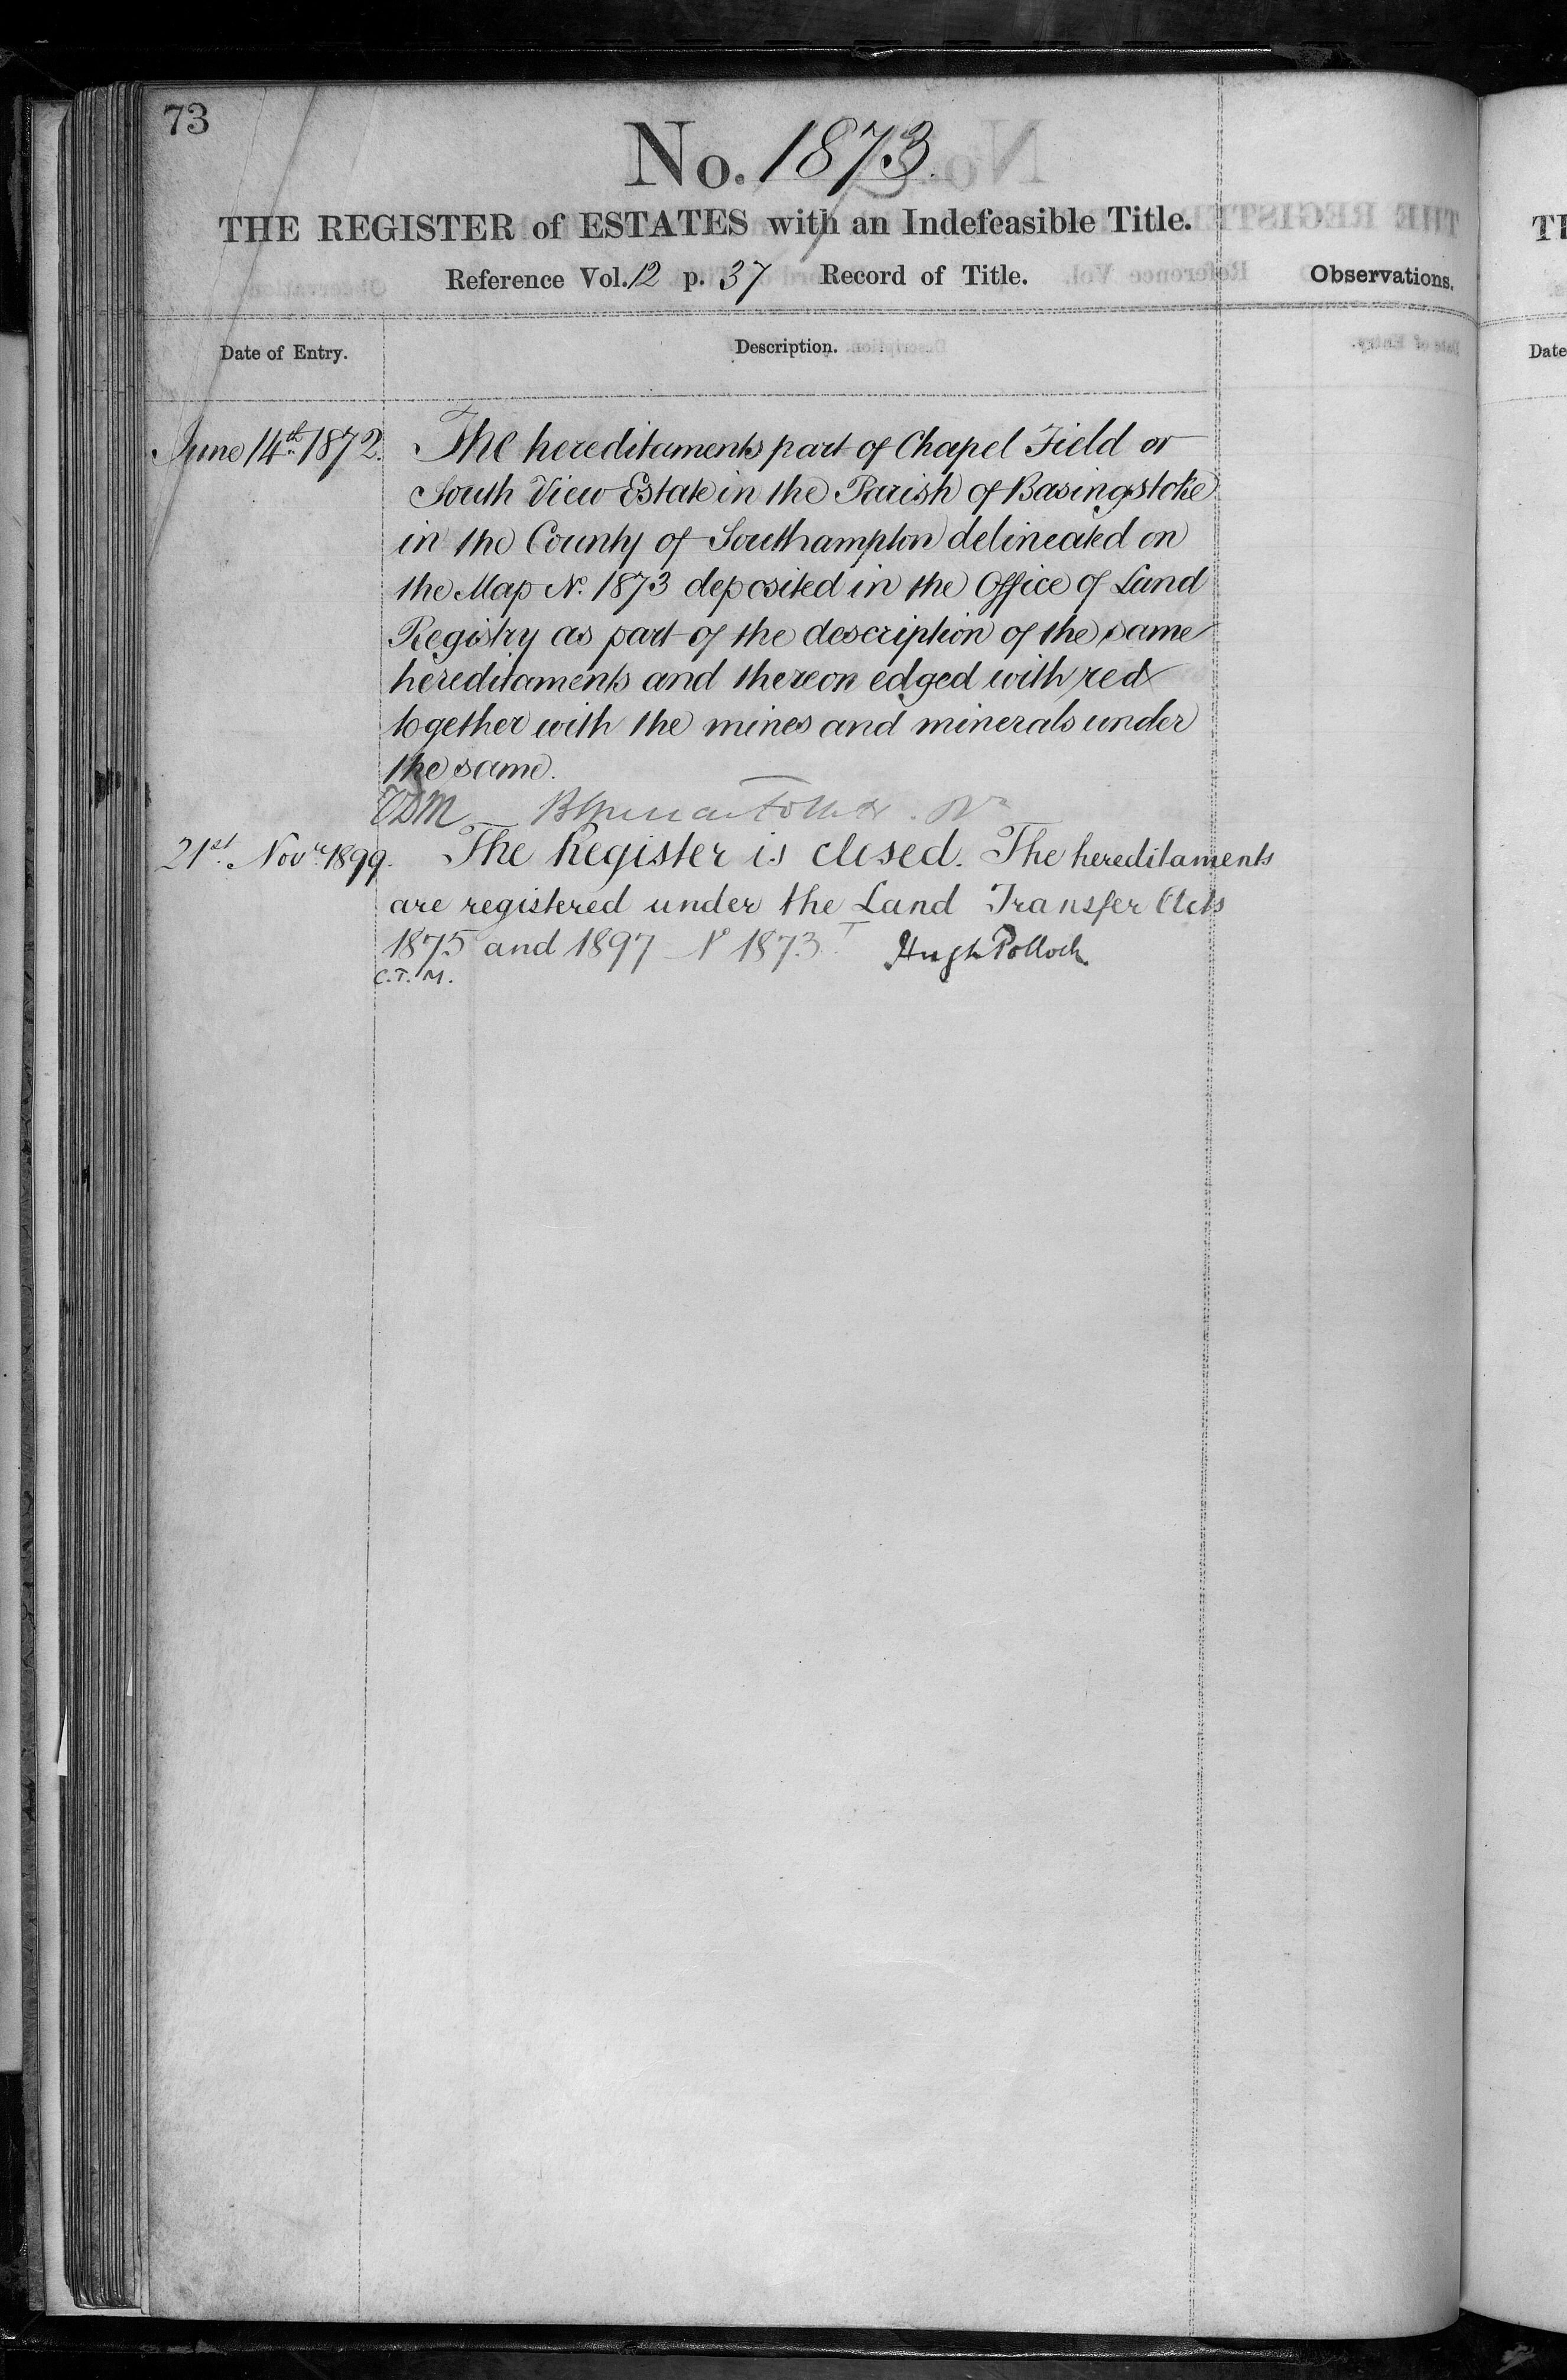 73
No. 1873.
THE REGISTER of ESTATES with an Indefeasible Title.
Reference Vol. 12 p. 37 Record of Title.
Observations.
Date of Entry.
Description.
June 14th 1872. The hereditaments part of Chapel Field or
South View Estate in the Parish of Basingstoke
in the County of Southampton delineated on
the Map No. 1873 deposited in the Office of Land
Registry as part of the description of the same
hereditaments and thereon edged with red
together with the mines and minerals under
the same.
21st Novr. 1899. The Register is closed. The hereditaments
are registered under the Land Transfer Acts
1875 and 1897 No 1873 T Hugh Pollock.
C.T.M.
Date